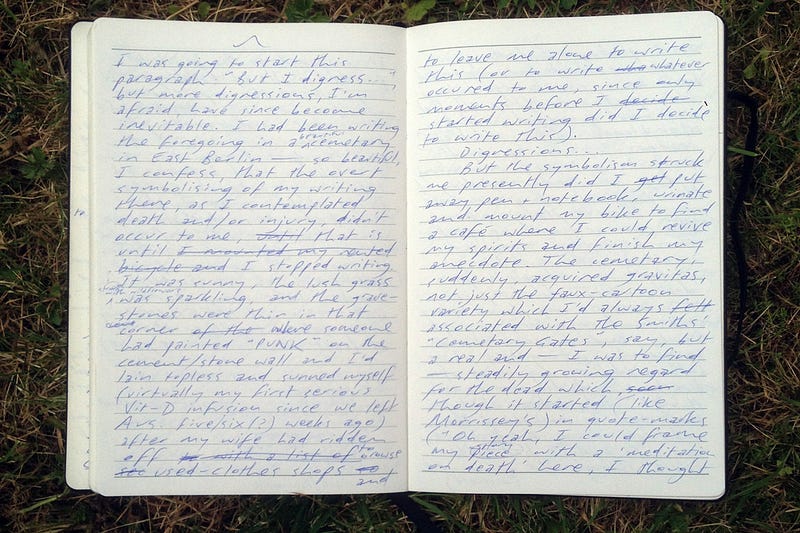 I was going to start this
paragraph: "But I digress...",
but more digressions, I'm
afraid have since become
inevitable. I had been writing
the foregoing in a beautiful cemetary
in East Berlin — so beautiful,
I confess, that the overt
symbolising of my writing
there, as I contemplated
death and/or injury, didn't
occur to me, until that is
until I mounted my rented
bicycle and I stopped writing.
It was sunny, the lush grass
was sparkling, and the grave-
stones were thin in that
corner of the where someone
had painted "PUNK" on the
cement/stone wall and I'd
lain topless and sunned myself
(virtually my first serious
Vit-D infusion since we left
Aus. five/six(?) weeks ago)
after my wife had ridden
off with a list of to browse
used-clothes shops to
and
to
to leave me alone to write
this (or to write wha whatever
occured to me, since only
moments before I decide
started writing did I decide
to write this).
Digressions...
But the symbolism struck
me presently did I get put
away pen + notebook, urinate
and mount my bike to find
a café where I could revive
my spirits and finish my
anecdote. The cemetary,
suddenly, acquired gravitas,
not just the faux-cartoon
variety which I'd always felt
associated with The Smiths'
"Cemetary Gates", say, but
a real and — I was to find
— steadily growing regard
for the dead which soon
though it started (like
Morrissey's) in quote-marks
("Oh yeah, I could frame
my story piece with a 'meditation
on death' here, I thought